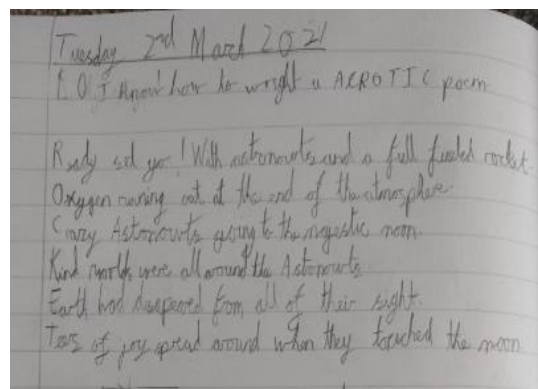 Tuesday 2nd March 2021
LO I know how to wright a ACROTIC poem
Ready set go! With astronouts and a full fueled rocket.
Oxygen runing out at the end of the atmosphere.
Crazy Astronouts going to the magestic moon.
Kind were all around the Astronouts
Earth had disapeared from all of their sight.
Tears of joy spread around when they touched the moon